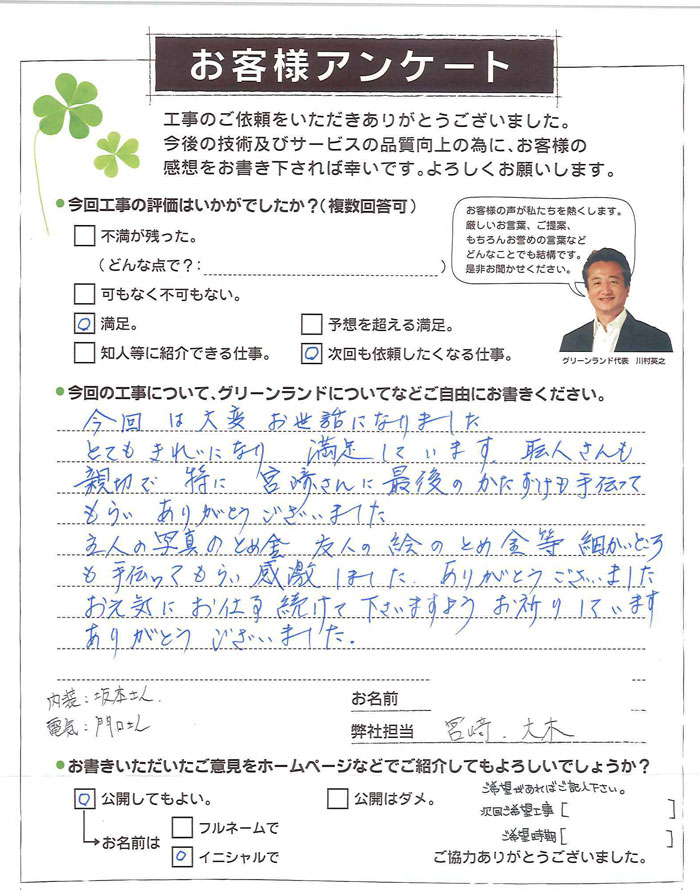 お客様アンケート
工事のご依頼をいただきありがとうございました。
今後の技術及びサービスの品質向上の為に、お客様の
感想をお書き下されば幸いです。よろしくお願いします。
●今回工事の評価はいかがでしたか？（複数回答可）
不満が残った。
（どんな点で？：　）
可もなく不可もない。
○ 満足。
予想を超える満足。
知人等に紹介できる仕事。
○ 次回も依頼したくなる仕事。
お客様の声が私たちを熱くします。
厳しいお言葉、ご提案、
もちろんお誉めの言葉など
どんなことでも結構です。
是非お聞かせください。
グリーンランド代表　川村英之
●今回の工事について、グリーンランドについてなどご自由にお書きください。
今回は大変お世話になりました
とてもきれいになり 満足しています。職人さんも
親切で 特に 宮崎さんに最後のかたずけも手伝って
もらい ありがとうございました
主人の写真のとめ金 友人の絵のとめ金等 細かいところ
も手伝ってもらい感激しました。ありがとうございました
お元気にお仕事続けて下さいますようお祈りしています
ありがとうございました。
内装：坂本さん.
電気：門口さん
お名前
弊社担当 宮崎．大木
●お書きいただいたご意見をホームページなどでご紹介してもよろしいでしょうか？
○ 公開してもよい。
公開はダメ。
お名前は
フルネームで
○ イニシャルで
ご希望があればご記入下さい。
次回ご希望工事［　］
ご希望時期［　］
ご協力ありがとうございました。